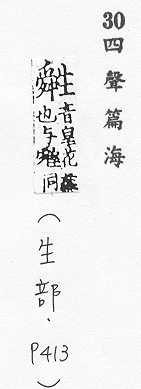 30四聲篇海
音皇花
也与同
（生部、P413）